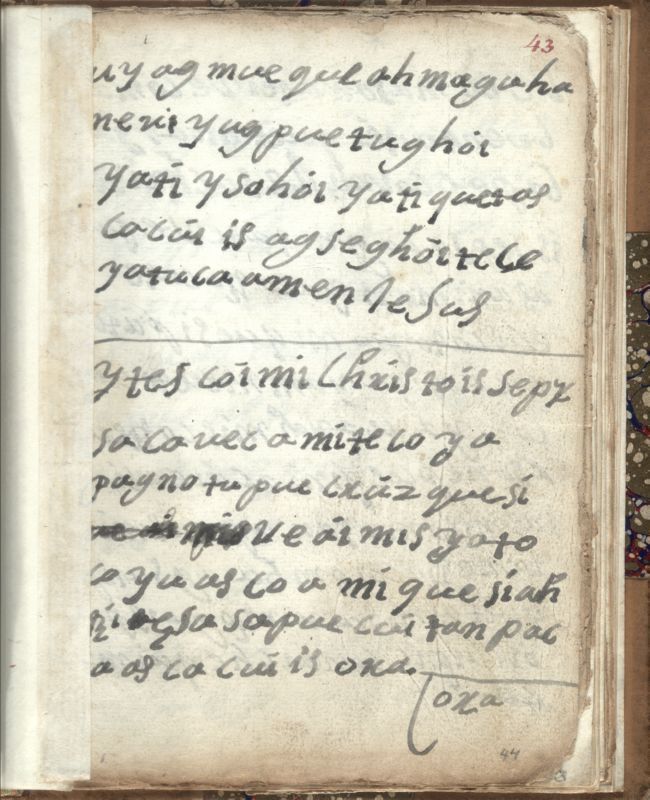 43
uy og mue que ah mo guha
neui y ug pue tu ghói
yati y so hói yati quetos
co cúi is og seghōi te ce
yotuca amen Jesus
ytes cói mi Christo is sepx
sa ca uec a mi te co y a
pagno tu pue cxúz que si
ue ái mis yoto
co yu as co a mi que si ah
sa sa pue cúi tan pac
a as ca cúi is oxa.
oxa
44